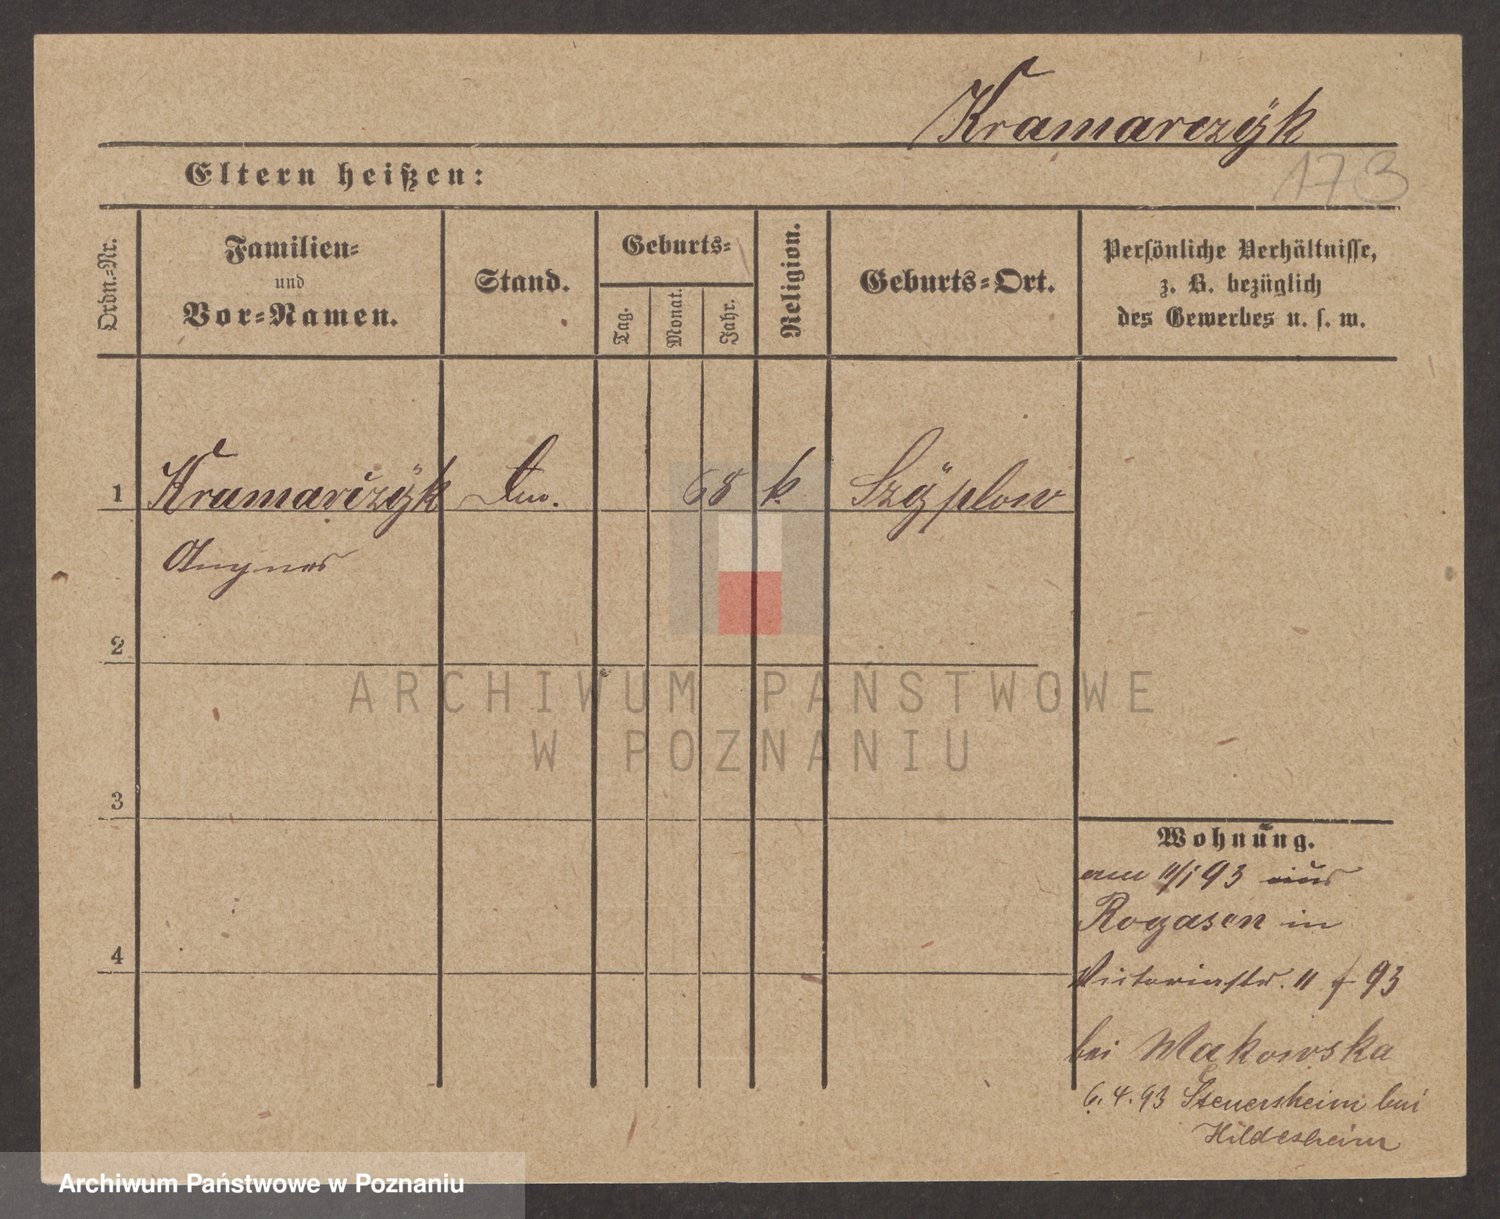 Kramarczÿk
173
Eltern heißen:
Ordn.-Nr.
Familien-
und
Vor-Namen.
Stand.
Geburts-
Tag.
Monat.
Jahr.
Religion.
Geburts-Ort.
Persönliche Verhältnisse,
z. B. bezüglich
des Gewerbes u. s. w.
1 Kramarczÿk 68 k. Szÿplow
Angnes
2
ARCHIWUM PAŃSTWOWE
W POZNANIU
3
Wohnung.
am 11/1 93 aus
Rogasen in
4
Victoriastr. 11 93
bei Makowska
6.4.93 Steuersheim bei
Hildesheim
Archiwum Państwowe w Poznaniu